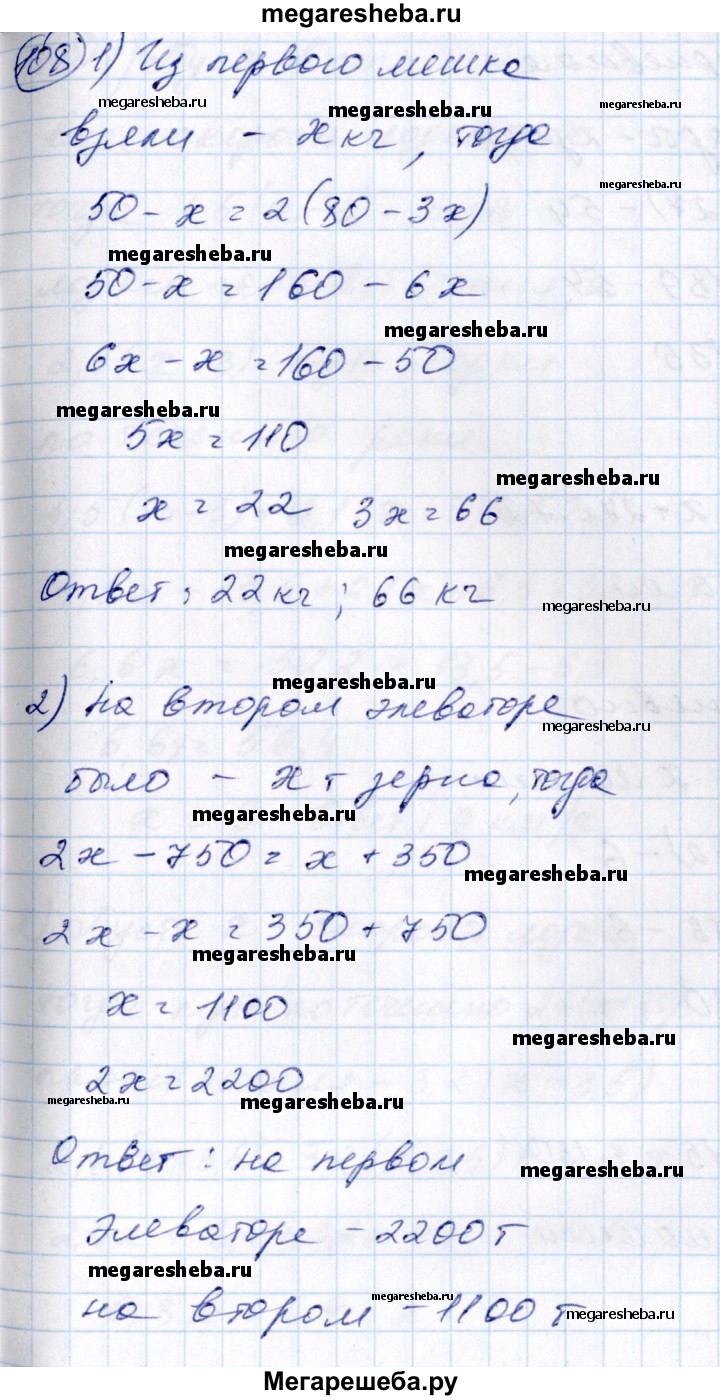 megaresheba.ru
108) 1) Из первого мешка
megaresheba.ru megaresheba.ru megaresheba.ru
взяли - x кг, тогда
megaresheba.ru
50 - x = 2(80 - 3x)
megaresheba.ru
50 - x = 160 - 6x
megaresheba.ru
6x - x = 160 - 50
megaresheba.ru
5x = 110
megaresheba.ru
x = 22 3x = 66
megaresheba.ru
Ответ: 22 кг; 66 кг
megaresheba.ru
megaresheba.ru
2) На втором элеваторе
megaresheba.ru
было - x т зерна, тогда
megaresheba.ru
2x - 750 = x + 350
megaresheba.ru
2x - x = 350 + 750
megaresheba.ru
x = 1100
megaresheba.ru
2x = 2200
megaresheba.ru megaresheba.ru
Ответ: на первом
megaresheba.ru
элеваторе - 2200 т
megaresheba.ru
на втором - 1100 т
megaresheba.ru megaresheba.ru
Мегарешеба.ру